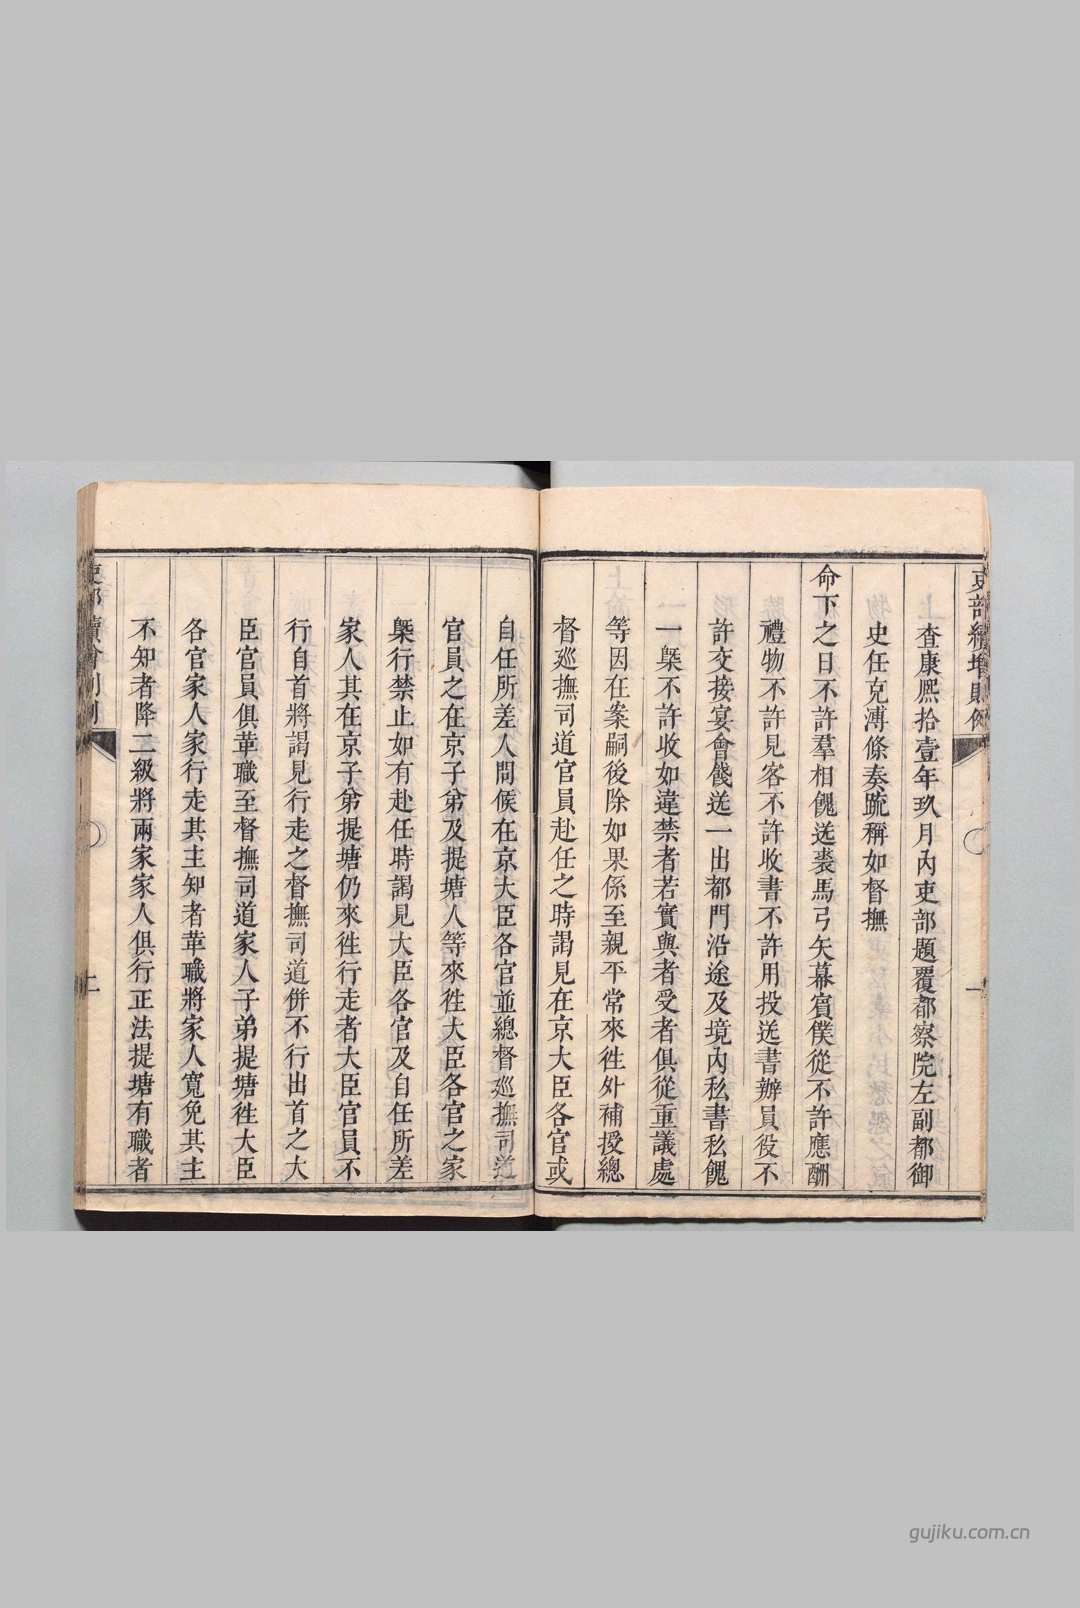 吏部續增則例
一
查康熙拾壹年玖月內吏部題覆都察院左副都御
史任克溥條奏疏稱如督撫
命下之日不許羣相餽送裘馬弓矢幕賓僕從不許應酬
禮物不許見客不許收書不許用投送書辦員役不
許交接宴會餞送一出都門沿途及境內私書私餽
一槩不許收如違禁者若實與者受者俱從重議處
等因在案嗣後除如果係至親平常來徃外補授總
督廵撫司道官員赴任之時謁見在京大臣各官或
自任所差人問候在京大臣各官並總督廵撫司道
官員之在京子弟及提塘人等來徃大臣各官之家
槩行禁止如有赴任時謁見大臣各官及自任所差
家人其在京子弟提塘仍來徃行走者大臣官員不
行自首將謁見行走之督撫司道併不行出首之大
臣官員俱革職至督撫司道家人子弟提塘徃大臣
各官家人家行走其主知者革職將家人寬免其主
不知者降二級將兩家家人俱行正法提塘有職者
gujiku.com.cn